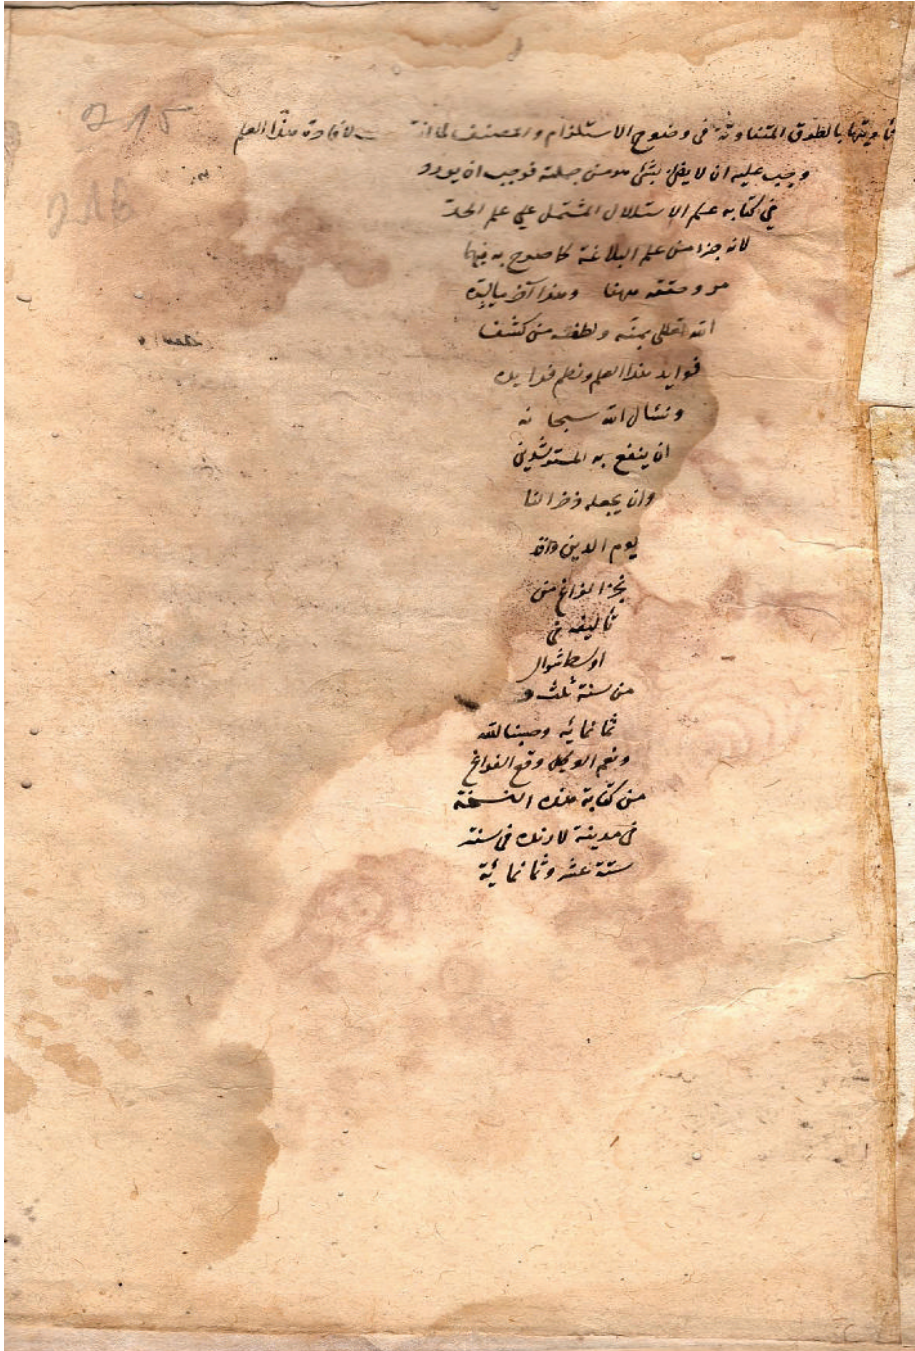 215
216
في وتتها بالطرق المتفاوتة في وضوح الاستلزام والمصنف لما لافادة هذا العلم
وجب عليه ان لا يخل بشئ هو من جملته فوجب ان يورد
في كتابه علم الاستدلال المشتمل علي علم الحد
لانه جزء من علم البلاغة كما صرح به فيما
مر وحققه ههنا وهذا آخر ما
الله تعالى بمنه ولطفه من كشف
فوايد هذا العلم ونظم فرايده
ونسٔال الله سبحا نه
ان ينفع به المسترشدين
وان يجعله ذخرا لنا
يوم الدين وقد
نجز الفراغ من
تأليفه في
اوسط شوال
من سنة ثلث و
ثمانمائه وحسبنا الله
ونعم الوكيل وقع الفراغ
من كتابة هذه النسخة
في مدينة لارنده في سنة
ستة عشر وثمانمائة